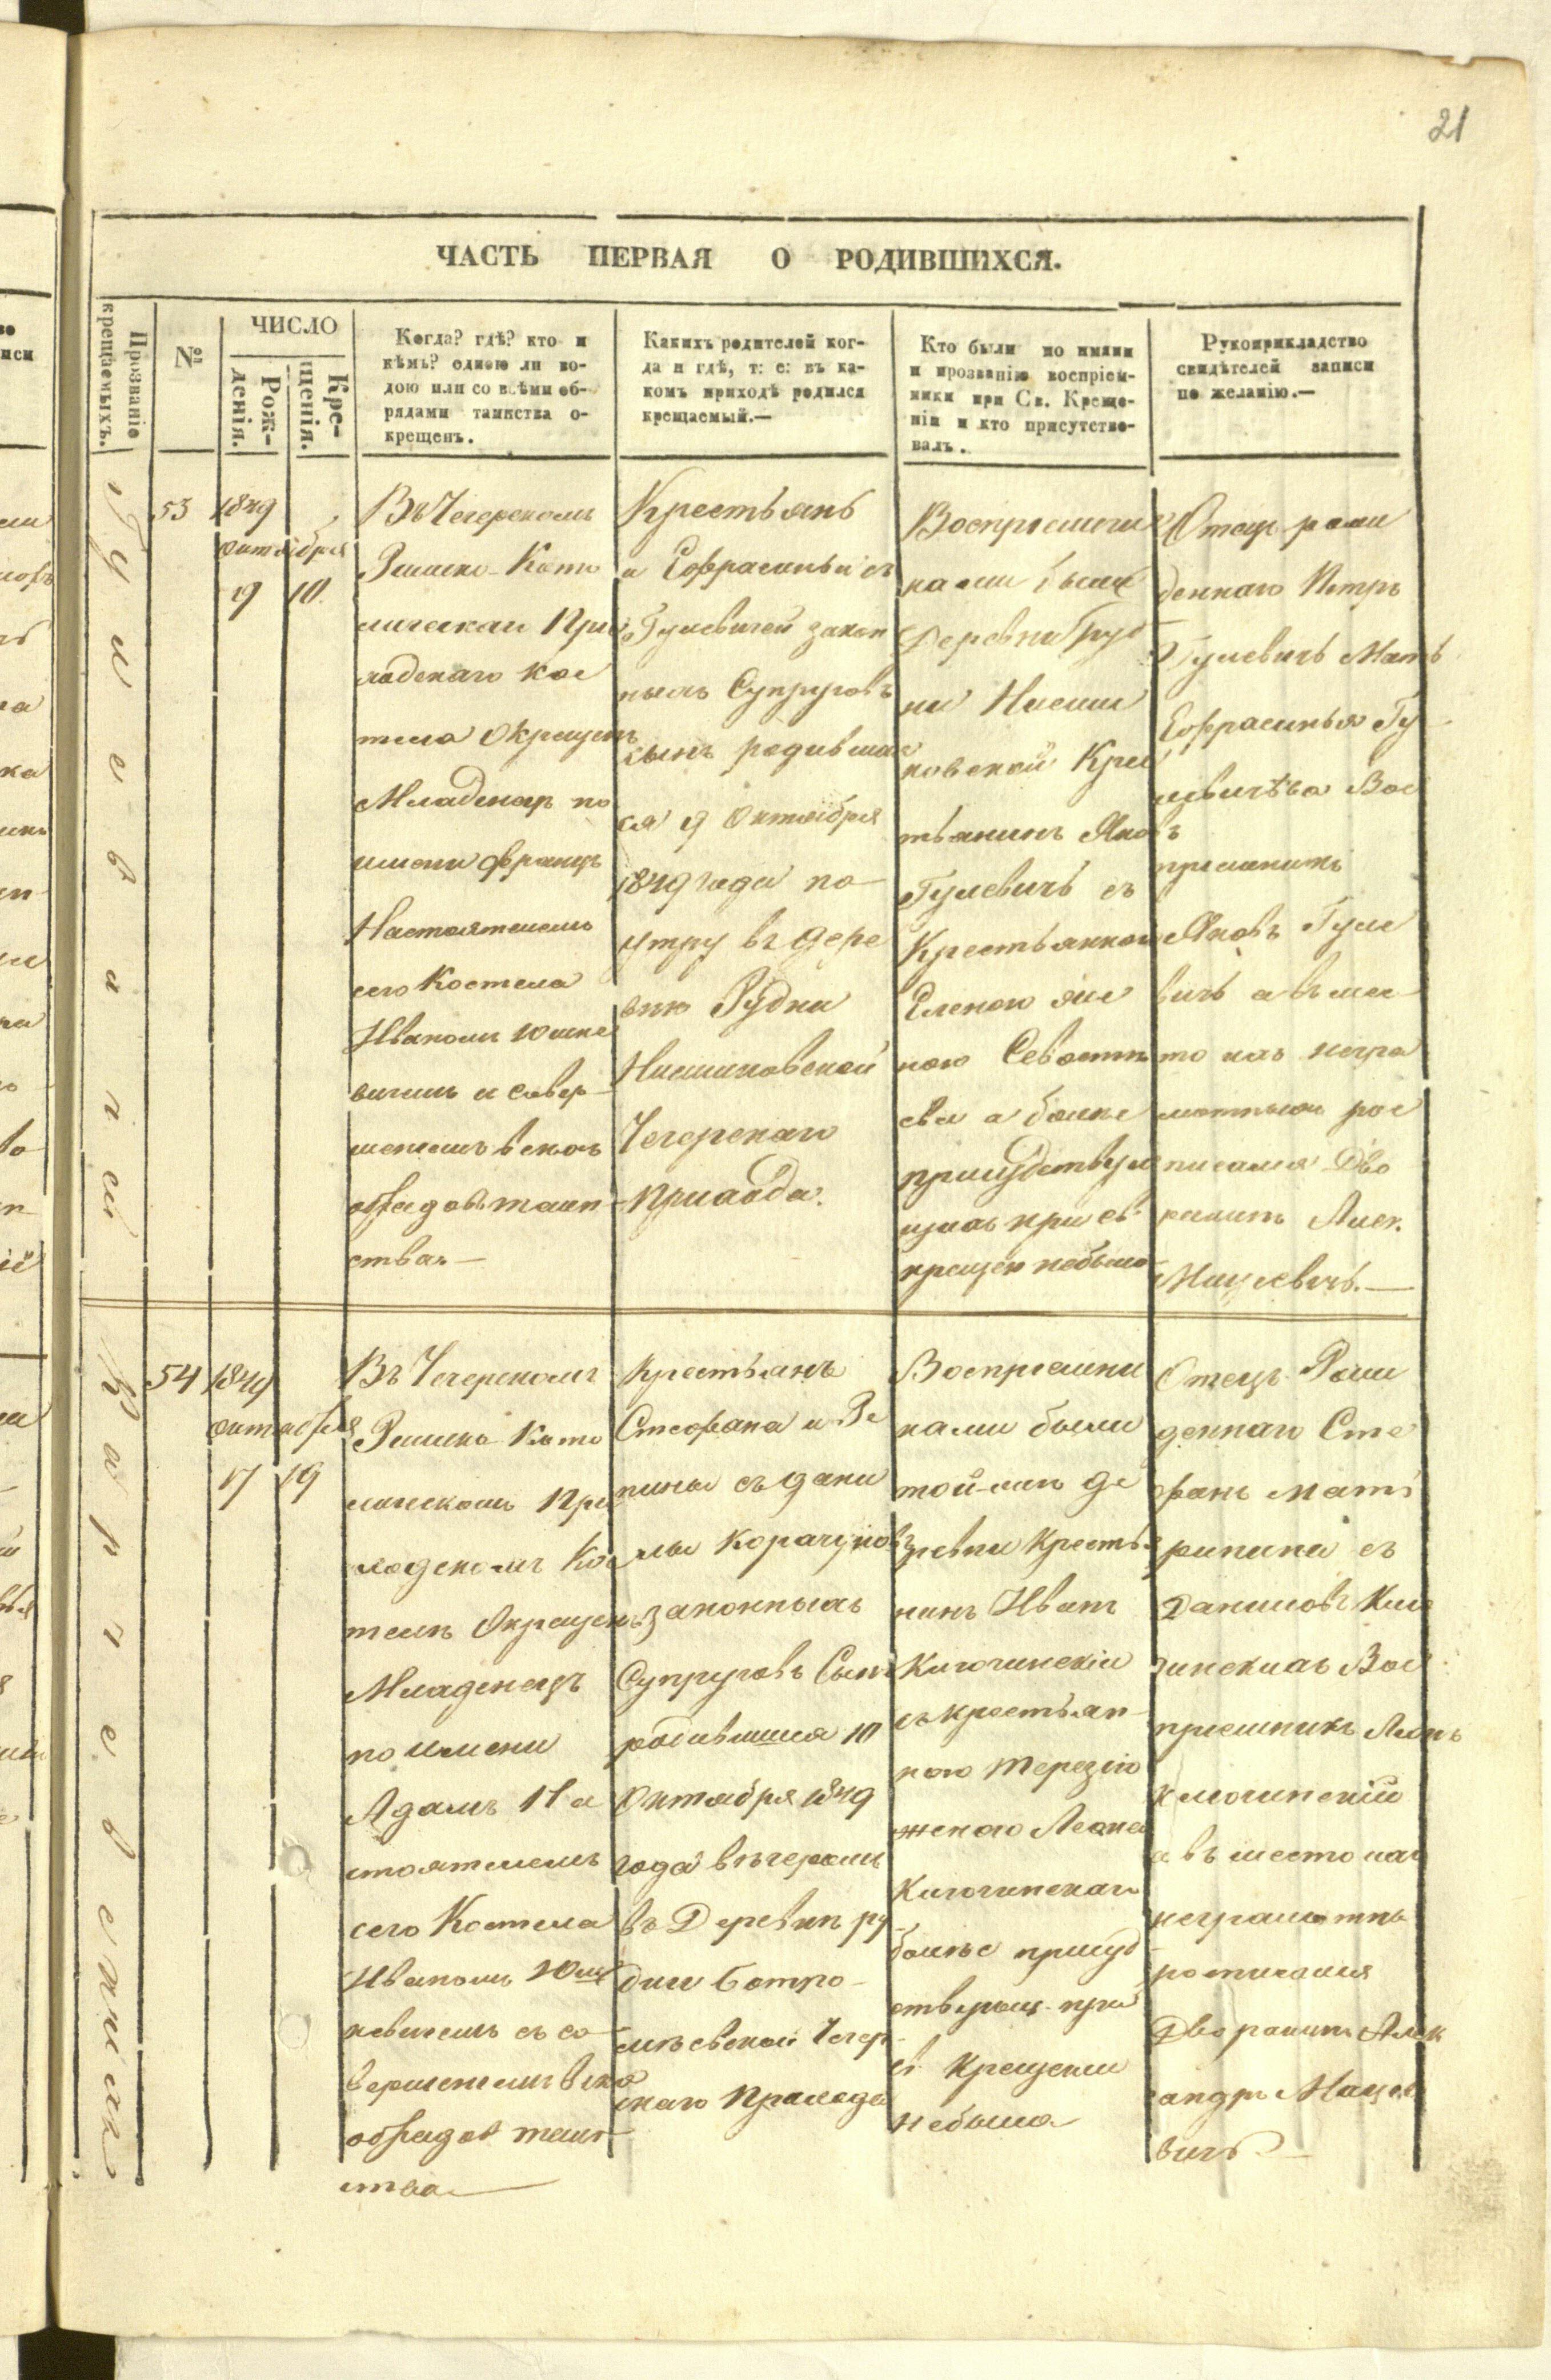 21
ЧАСТЬ ПЕРВАЯ О РОДИВШИХСЯ.
Прозваніе
крещаемыхъ.
№
ЧИСЛО
Рож-
денія.
Кре-
щенія.
Когда? гдѣ? кто и
кѣмъ? одною ли во-
дою или со всѣми об-
рядами таинства о-
крещенъ.
Какихъ родителей ког-
да и гдѣ, т: е: въ ка-
комъ приходѣ родился
крещаемый.—
Кто были по имяни
и прозванію воспріем-
ники при Св. Креще-
ніи и кто присутство-
валъ.
Рукоприкладство
свидѣтелей записи
по желанію.—
53
1849
октября
9 10
Въ Чечерскомъ
Римско-Като
лическаи При
ходскаго Кос
тела Окрещенъ
Младенецъ по
имени Францъ
Настоятелемъ
сего Костела
Иваномъ Юшке
вичемъ и совер-
шенемъ всѣхъ
обрядовъ таин-
ства.—
Крестьянъ
и Софрасиньи съ
Гулевичей закон
ныхъ Супруговъ
сынъ родивший
ся 9 Октября
1849 года по-
утру въ дере
внѣ Рудни
Нисимковской
Чечерскаго
прихода.
Воспріемни
ками были
Деревни Руд
ни Нисим
ковской Крес
тьянинъ Яковъ
Гулевичъ съ
Крестьянкою
Еленою
ною
а болѣе
присудствую
щихъ при св.
крещен небыло
Отецъ рожи
деннаго Петръ
Гулевичъ Мать
Софрасинья Гу-
левичѣва Вос
пріемникъ
Яковъ Гуле
вичъ а въ мес
то ихъ негра
мотныхъ рос
писался Дво
рянинъ Алек.
Мацкевичъ.—
54
1849
октября
17 19
Въ Чечерскомъ
Римско Като
лическомъ При
ходскомъ Кос
телѣ Окрещенъ
Младенецъ
по имени
Адамъ На
стоятелемъ
сего Костела
Иваномъ Юш
кевичемъ съ со-
вершенемъ всѣхъ
обрядов таин-
ства—
Крестьянъ
Стефана и
съ Дани
лы Корачуновъ
законныхъ
Супруговъ Сынъ
родившийся 17
Октября 1849
года вѣчеромъ
въ Деревнѣ Ру
дни
Чечер-
скаго Прихода
Воспріемни
ками были
той-же де
ревни Крестья
нинъ Иванъ
Ключинскій
съ крестьян-
кою Терезіею
женою Леона
Ключинскаго
болѣе присуд-
ствующ. при
св. Крещении
небыло
Отецъ Рожи
деннаго Сте
фанъ мать
съ
Вос
пріемникъ
Ключинскій
а въ место ихъ
неграмотны
росписался
Дворянинъ Алек
сандръ Мацке
вичъ—